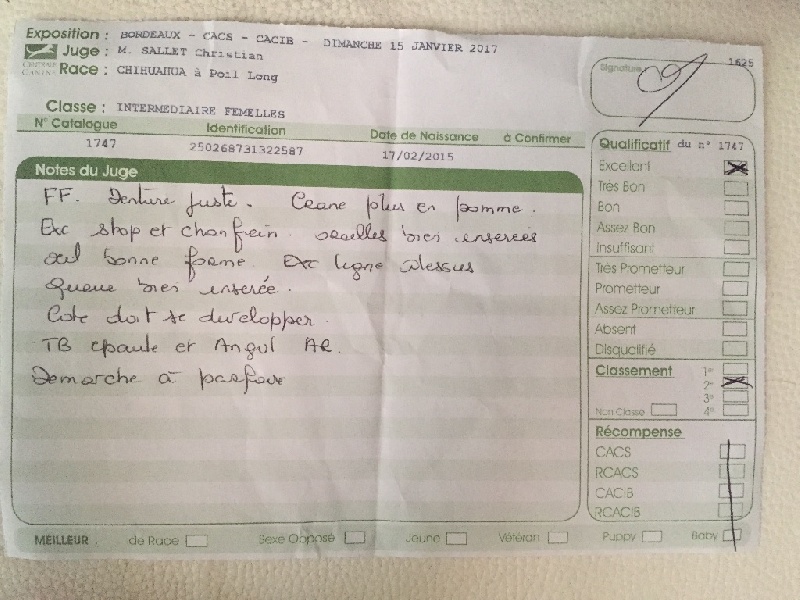 Exposition : BORDEAUX - CACS - CACIB - DIMANCHE 15 JANVIER 2017
Juge : M. SALLET Christian
CENTRALE CANINE
Race : CHIHUAHUA à Poil Long
Classe : INTERMEDIAIRE FEMELLES
N° Catalogue Identification Date de Naissance à Confirmer
1747 250268731322587 17/02/2015
Notes du Juge
FF. Denture juste. Crane plus en pomme.
Exc stop et chanfrein. oreilles bien inserées
œil bonne forme. Exc ligne dessus
Queue bien insérée.
Cote doit se developper.
TB epaule et Angul AR.
Demarche à parfaire
Signature
1625
Qualificatif du n° 1747
Excellent
Très Bon
Bon
Assez Bon
Insuffisant
Très Prometteur
Prometteur
Assez Prometteur
Absent
Disqualifié
Classement 1er
2e
3e
Non Classé 4e
Récompense
CACS
RCACS
CACIB
RCACIB
MEILLEUR : de Race Sexe Opposé Jeune Vétéran Puppy Baby